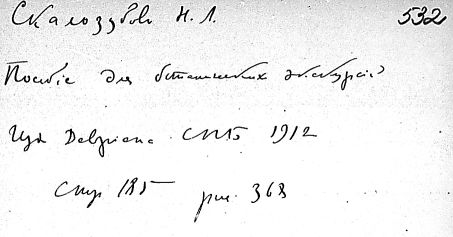 Скалозубов Н. Л. 532
Пособiе для ботаническихъ экскурсiй
Изд Девриена СПБ 1912
Стр 185 рис. 368